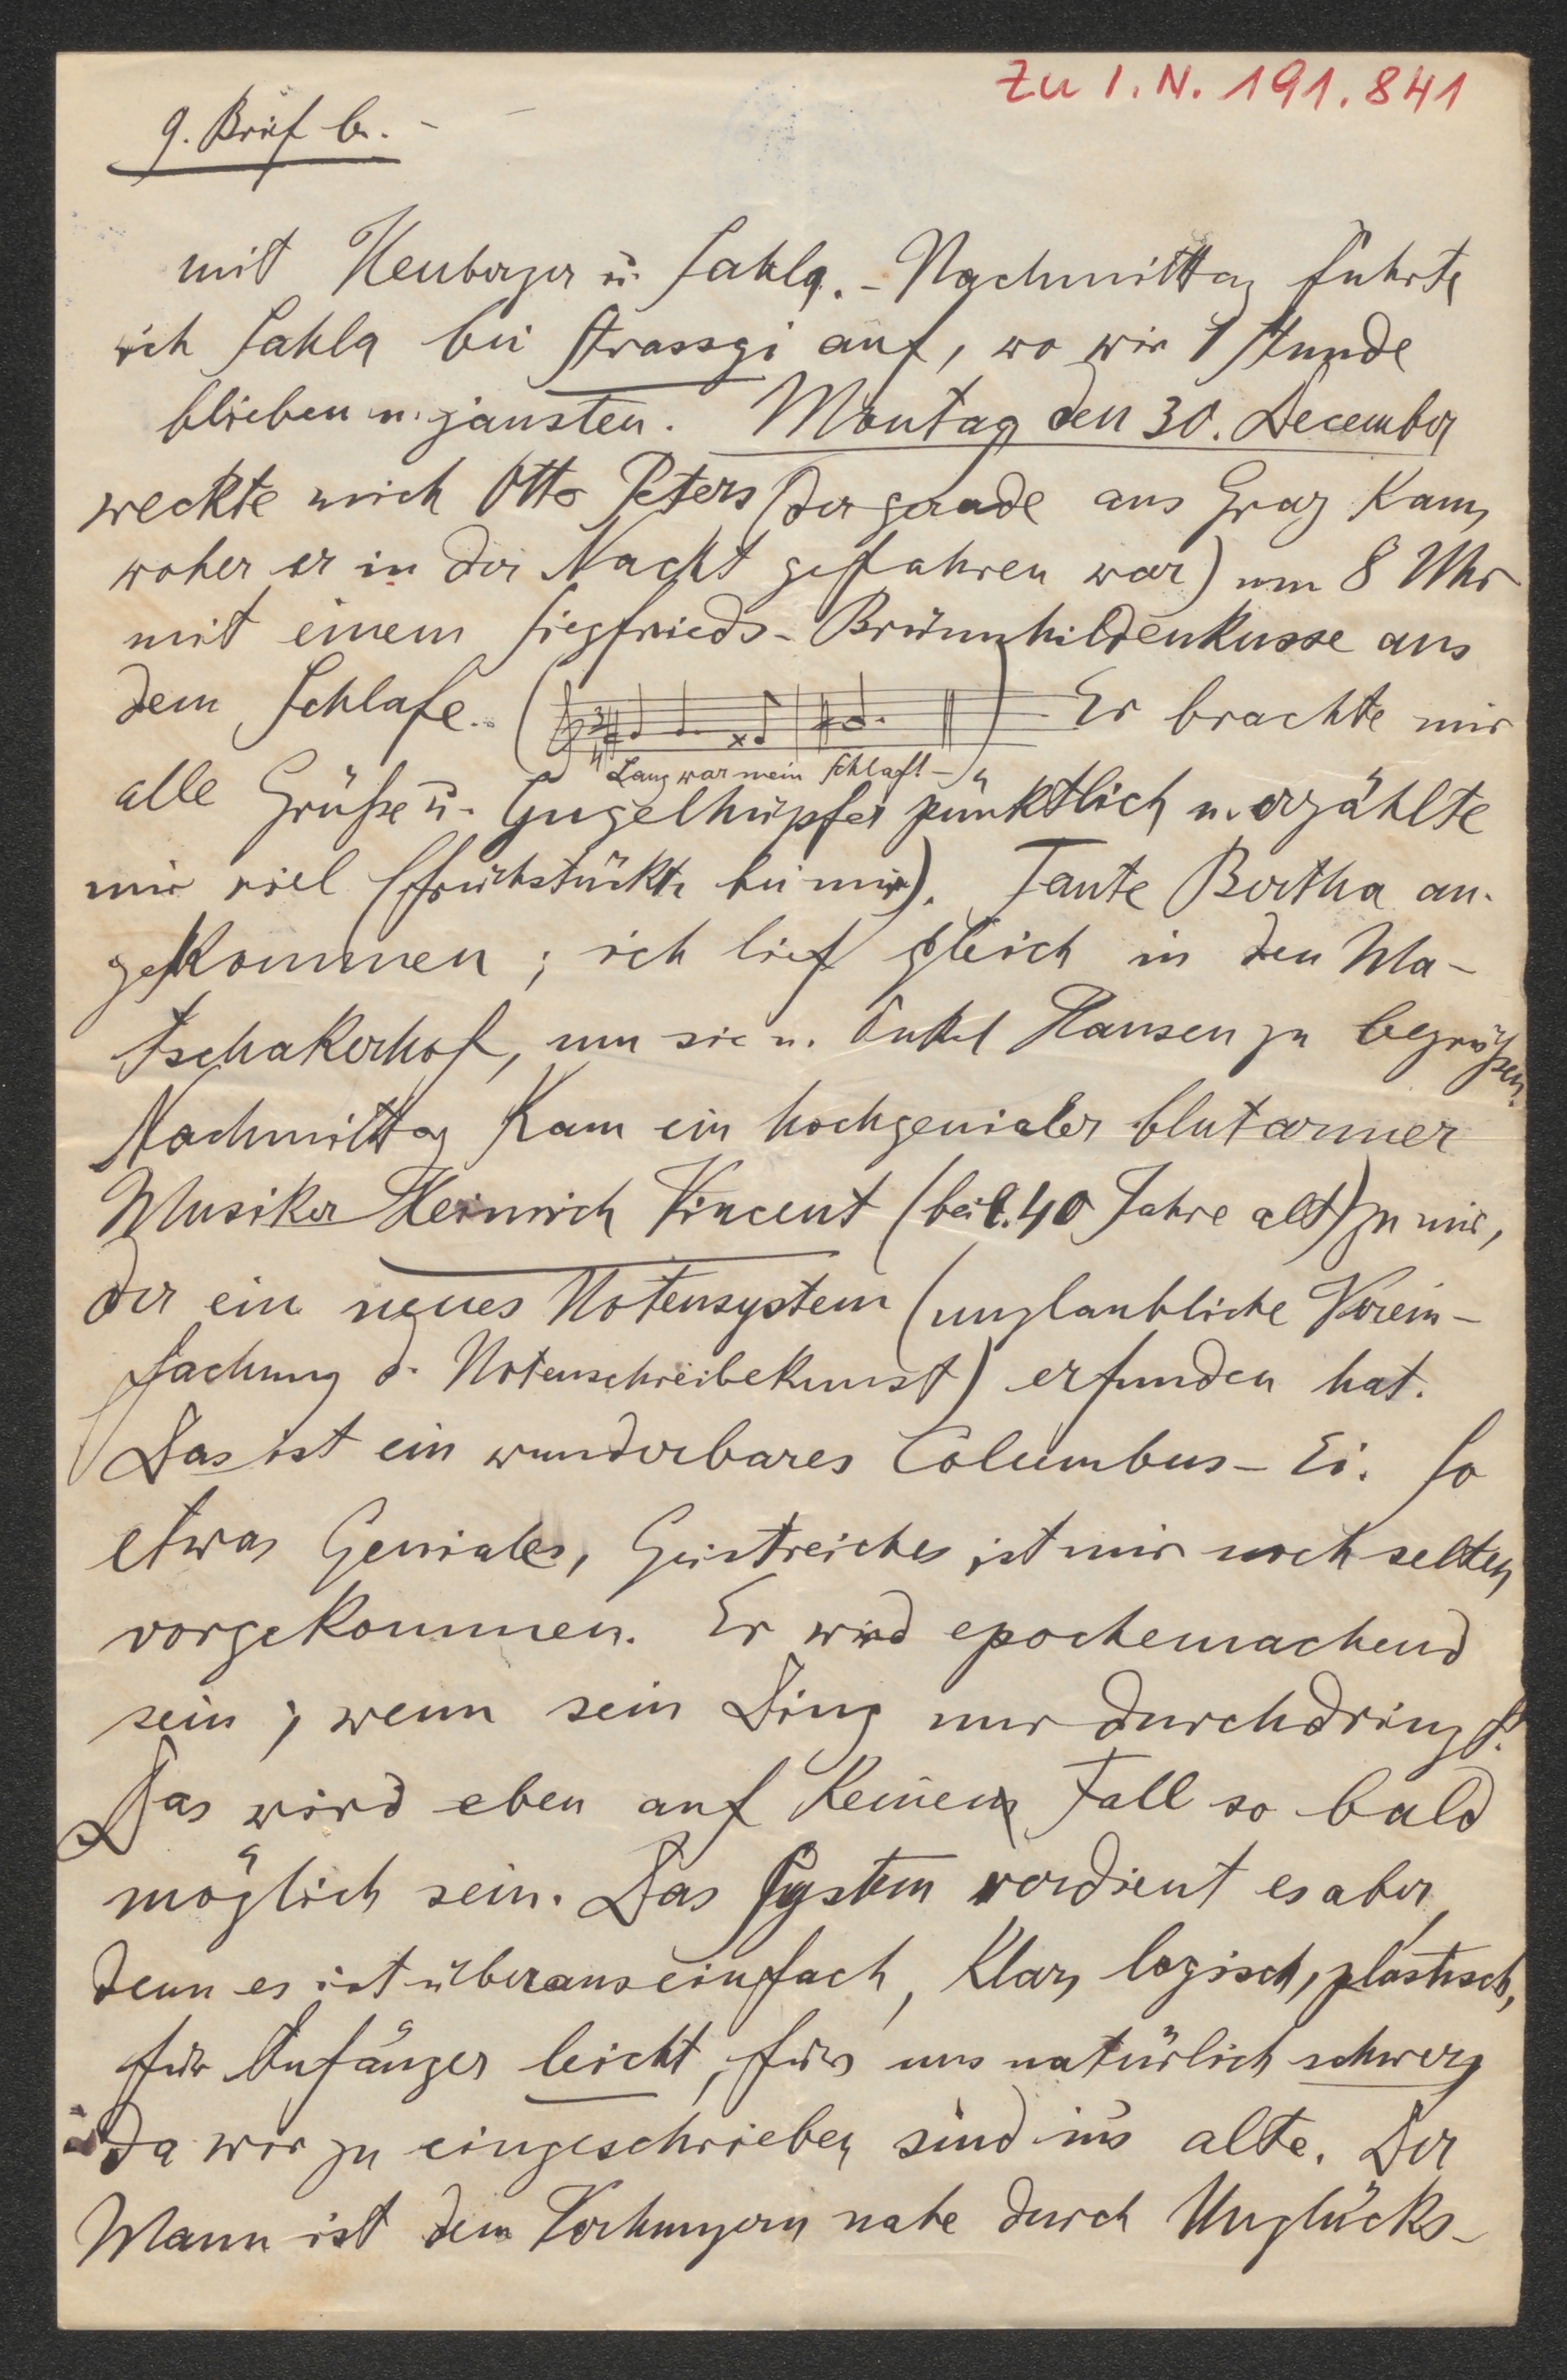 Zu I.N. 191.841
9. Brief b. -
mit Heuberger u. Sahla. - Nachmittag führte
ich Sahla bei Strassgi auf, wo wir 1 Stunde
blieben u. jausten. Montag den 30. December
weckte mich Otto Peters (der gerade aus Graz kam,
woher er in der Nacht gefahren war) um 8 Uhr
mit einem Siegfrieds-Brünnhildenkusse aus
dem Schlafe. ( ) Er brachte mir
Lang war mein Schlaf! -
alle Grüße u. Gugelhupfer pünktlich u. erzählte
mir viel (frühstückte bei mir). Tante Bertha an-
gekommen; ich lief gleich in den Ma-
tschakerhof, um sie u. Onkel Hansen zu begrüßen.
Nachmittag kam ein hochgenialer blutarmer
Musiker Heinrich Vincent (beil. 40 Jahre alt) zu mir,
der ein neues Notensystem (unglaubliche Verein-
fachung d. Notenschreibekunst) erfunden hat.
Das ist ein wunderbares Columbus-Ei. So
etwas Geniales, Geistreiches ist mir noch selten
vorgekommen. Er wird epochemachend
sein, wenn sein Ding nur durchdringt.
Das wird eben auf keinen Fall so bald
möglich sein. Das System verdient es aber,
denn es ist überaus einfach, klar, logisch, plastisch,
für Anfänger leicht, für uns natürlich schwer,
da wir zu eingeschrieben sind in's alte. Der
Mann ist dem Verhungern nahe durch Unglücks-